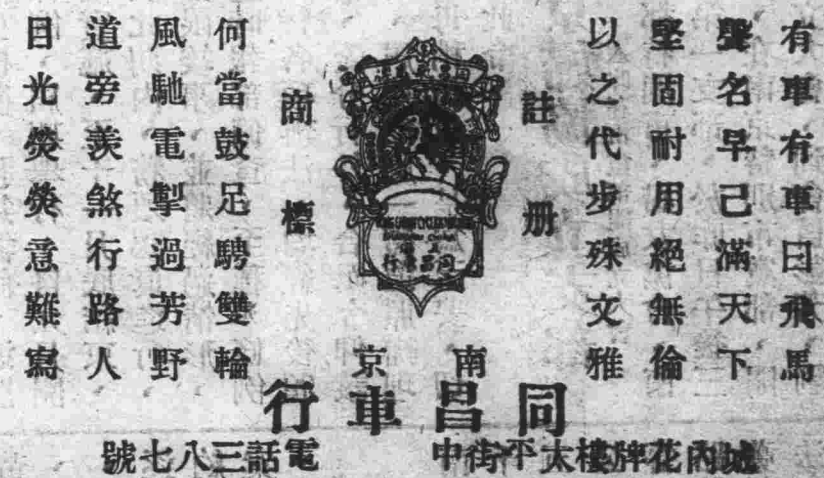 有車有車曰飛馬
聲名早已滿天下
堅固耐用絕無倫
以之代步殊文雅
註册
商標
同昌車行
何當鼓足騁雙輪
風馳電掣過芳野
道旁羨煞行路人
目光熒熒意難寫
南京
同昌車行
城內花牌樓太平街中
電話三八七號